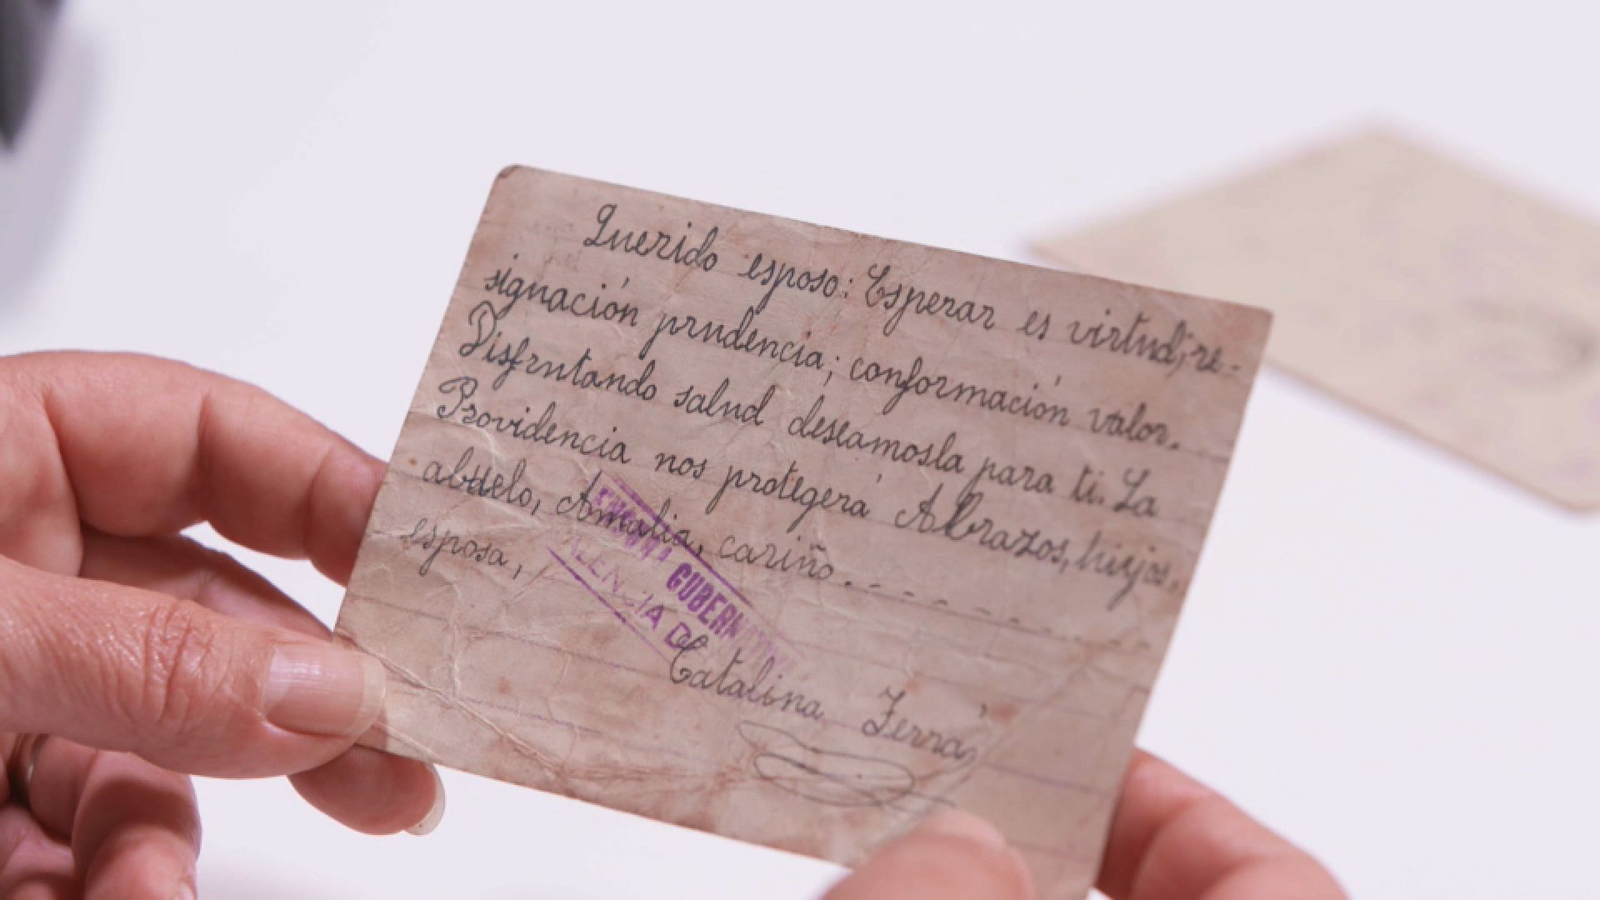 Querido esposo: Esperar es virtud; re-
signación prudencia; conformación valor.
Disfrutando salud deseamosla para ti. La
Providencia nos protegerá Abrazos, hijos,
abuelo, Amalia, cariño. - - - - - - - -
esposa,
GUBERNATIVA
Catalina